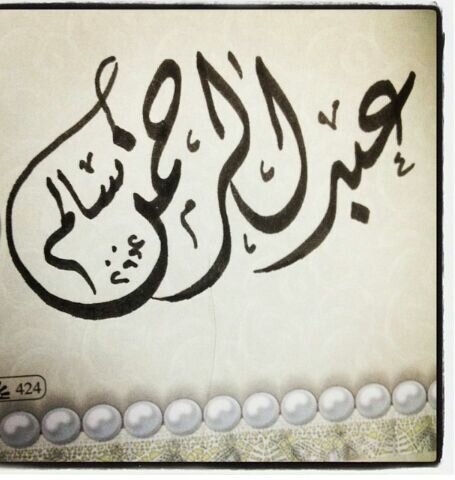 عبد الرحمن سالم
424